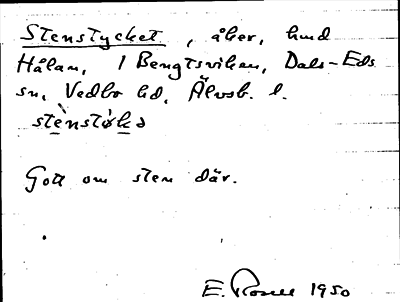 Stenstycket, åker, hmd
Hålan, 1 Bengtsviken, Dals-Eds
sn, Vedbo hd, Älvsb. l.
stènstøkə
Gott om sten där.
E. Rosell 1950